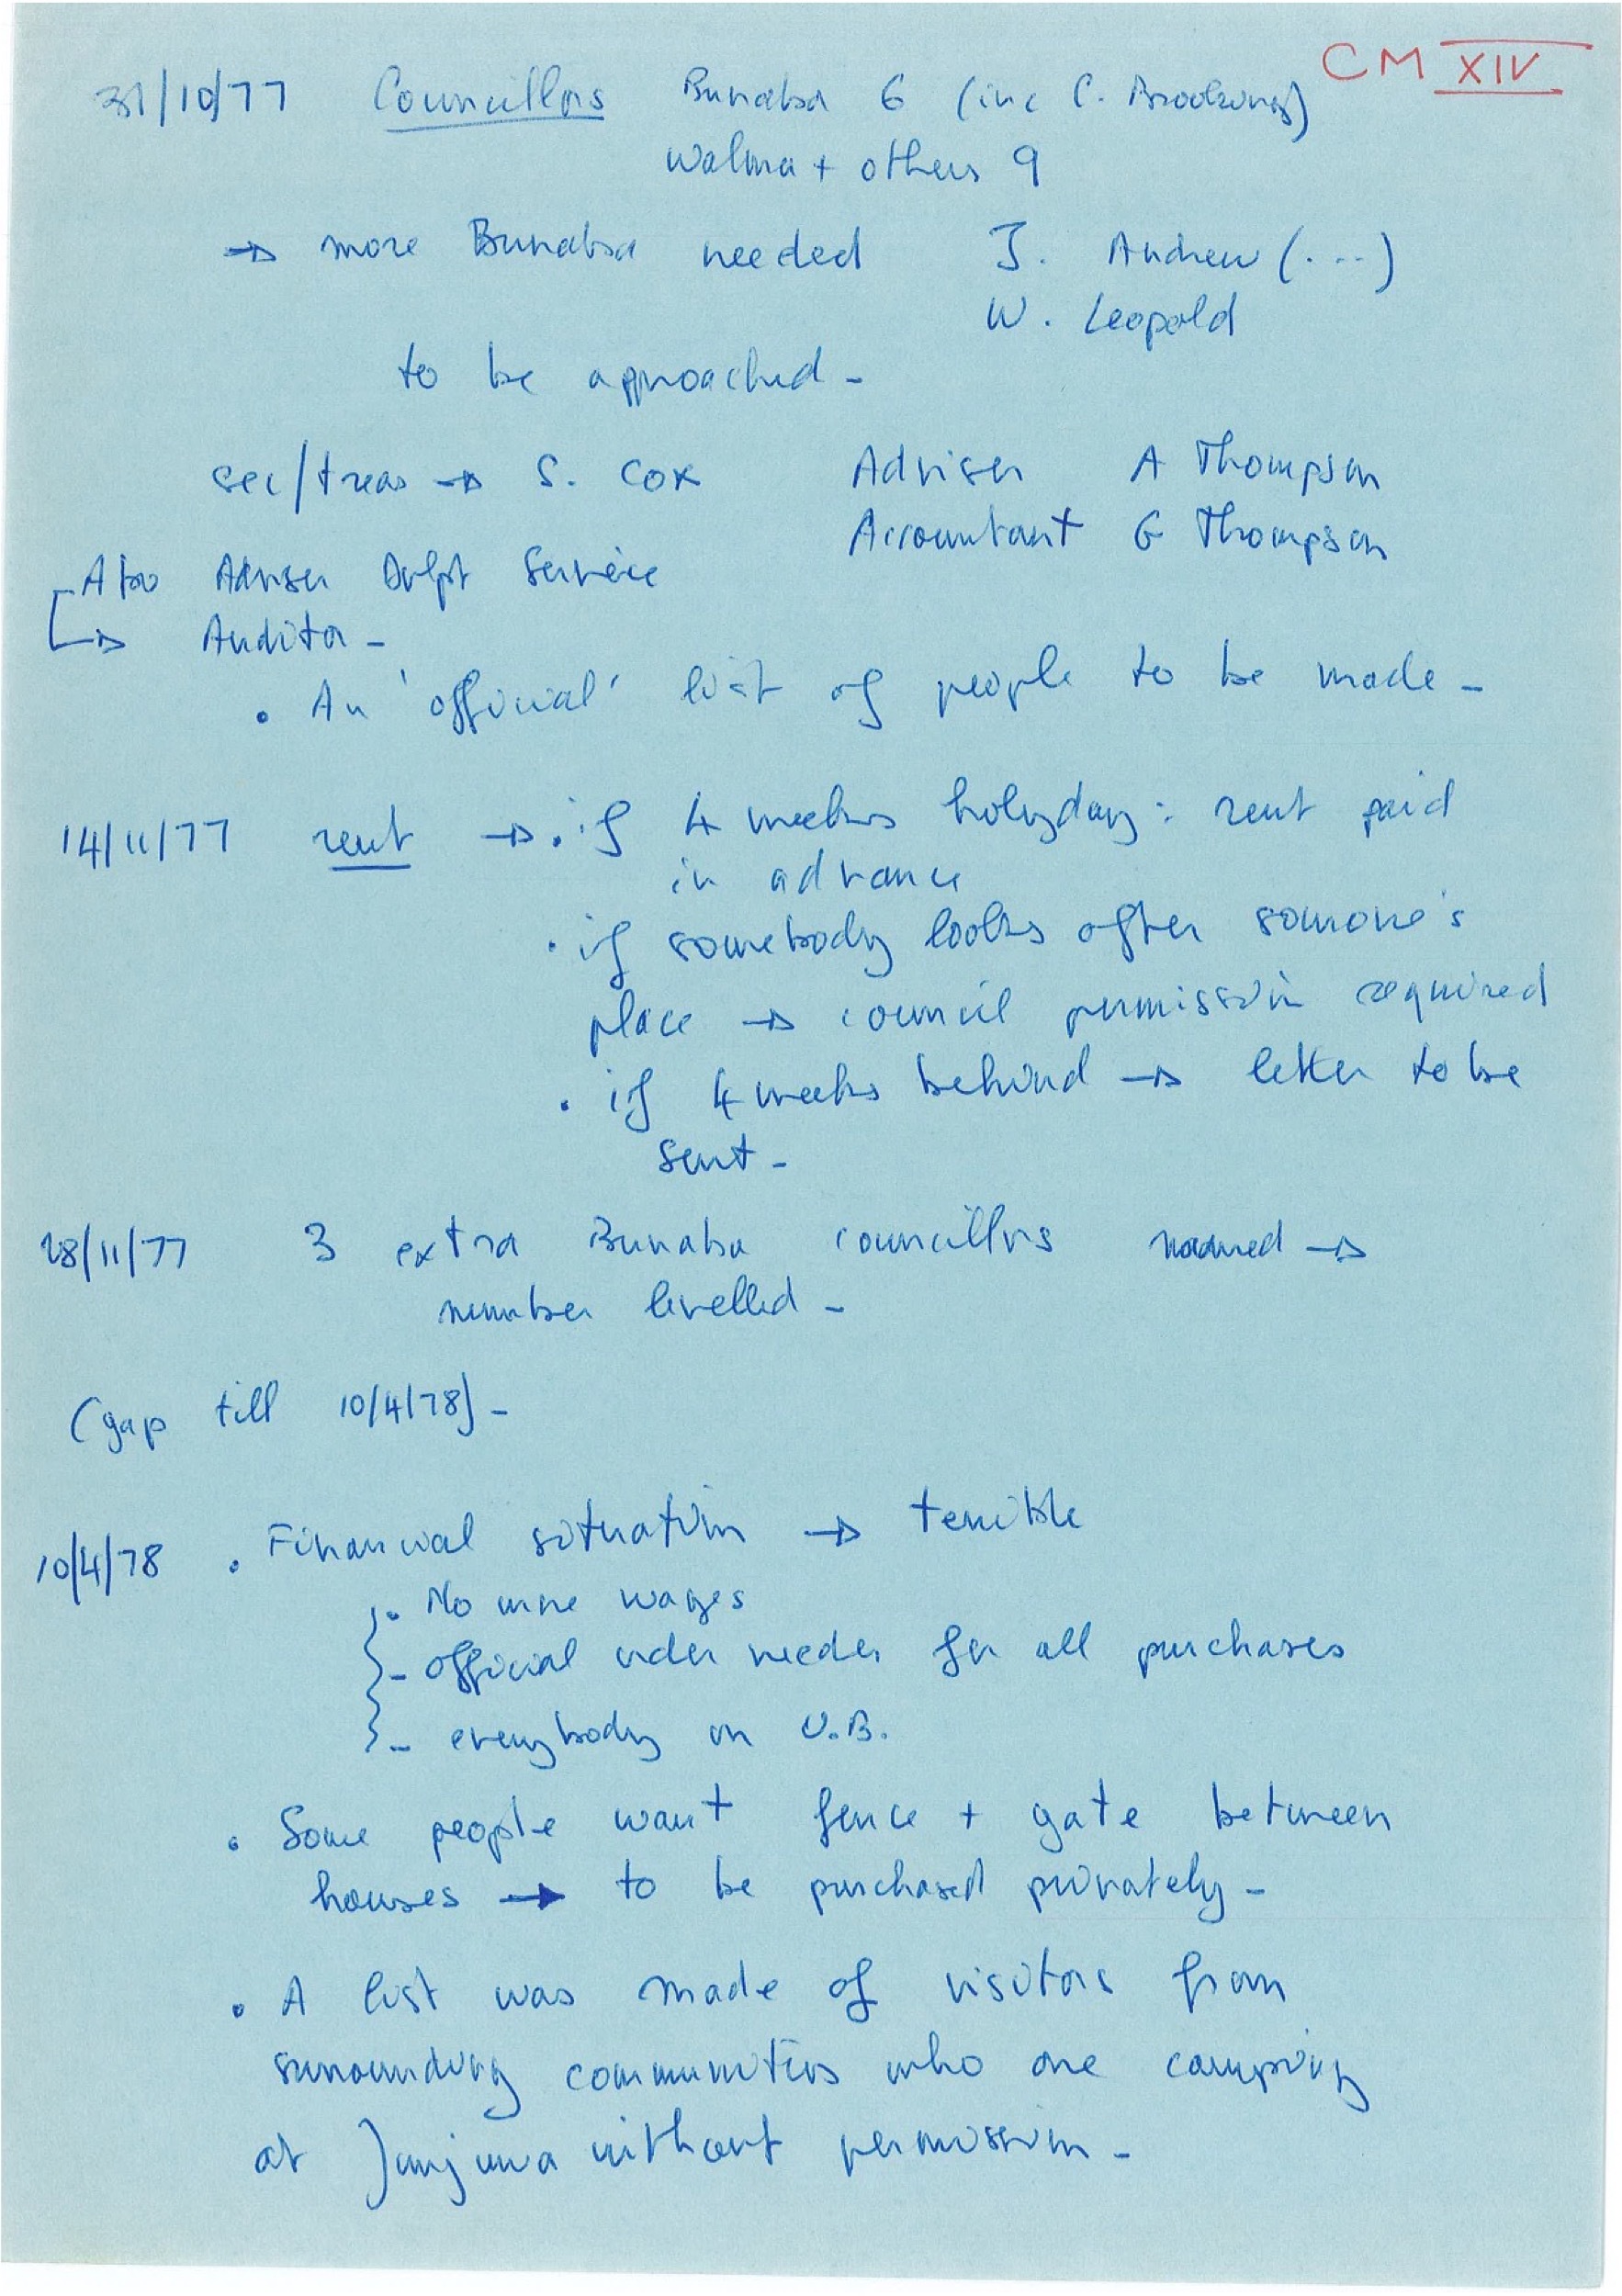 CM XIV
31/10/77 Councillors Bunaba 6 (inc C. Brooking)
Walma + others 9
→ more Bunaba needed J. Andrew (...)
W. Leopold
to be approached -
sec/treas → S. Cox Adviser A Thompson
Accountant G Thompson
Also Adviser Dvlpt Service
→ Auditor -
• An 'official' list of people to be made -
14/11/77 rent → • if 4 weeks holyday : rent paid
in advance
• if somebody looks after somone's
place → council permission required
• if 4 weeks behind → letter to be
sent -
28/11/77 3 extra Bunaba councillors named →
number levelled -
(gap till 10/4/78) -
10/4/78 • Financial situation → terrible
• No more wages
- official order needer for all purchases
- everybody on U.B.
• Some people want fence + gate between
houses → to be purchased privately -
• A list was made of visitors from
surrounding communities who are camping
at Junjuwa without permission -